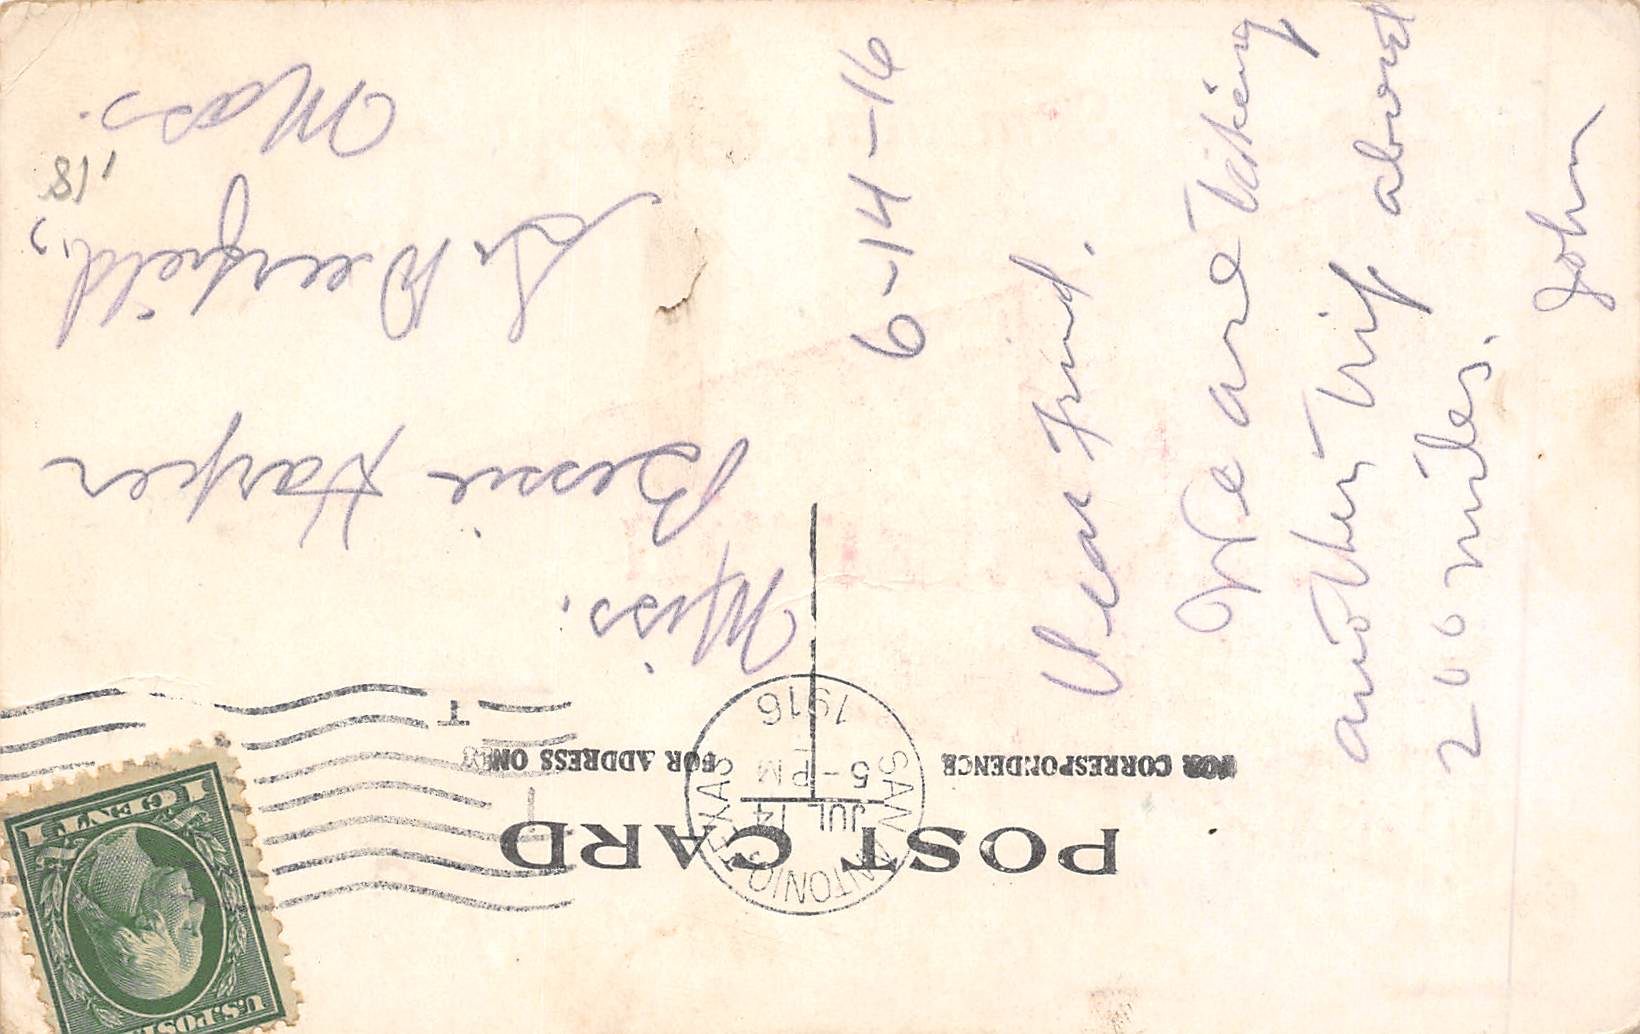 POST CARD
FOR CORRESPONDENCE
FOR ADDRESS ONLY
SAN ANTONIO, TEXAS
JUL 14
5-PM
1916
T
U.S. POSTAGE
1 CENT 1
6-14-16
Dear Friend.
We are taking
another trip about
200 miles.
John
Miss.
Bessie Harper
So. Deerfield,
Mass.
'18